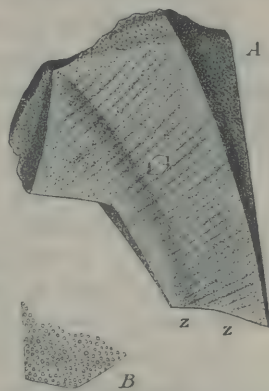 A
z z
B